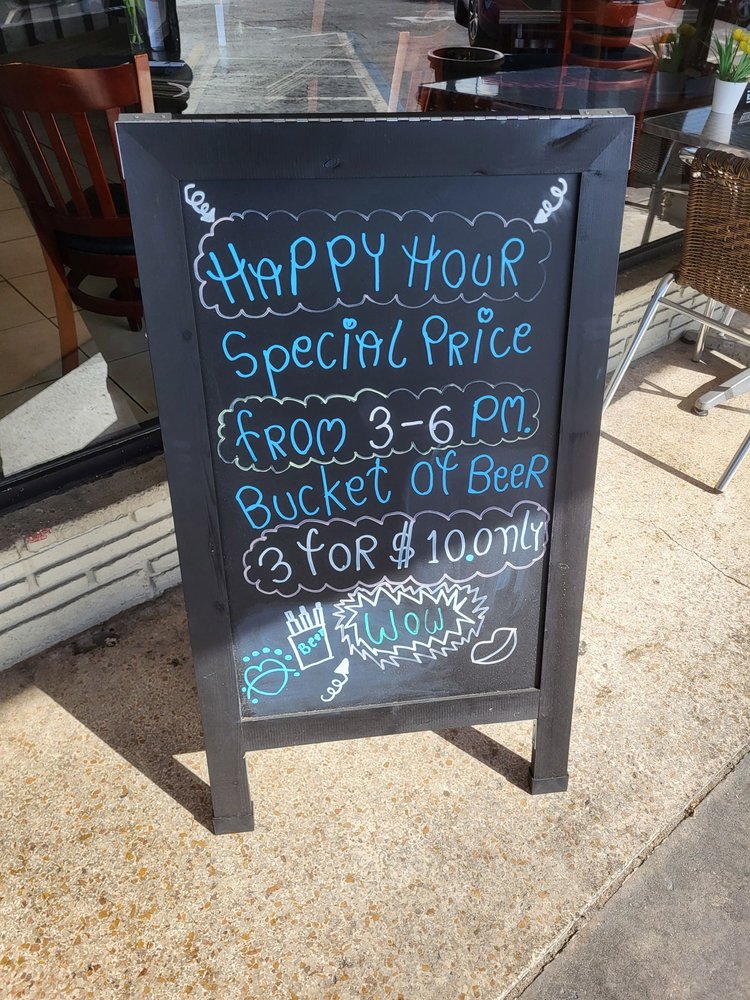 HAPPY HOUR
Special Price
from 3-6 PM.
Bucket of Beer
3 for $10.only
Beer
WOW